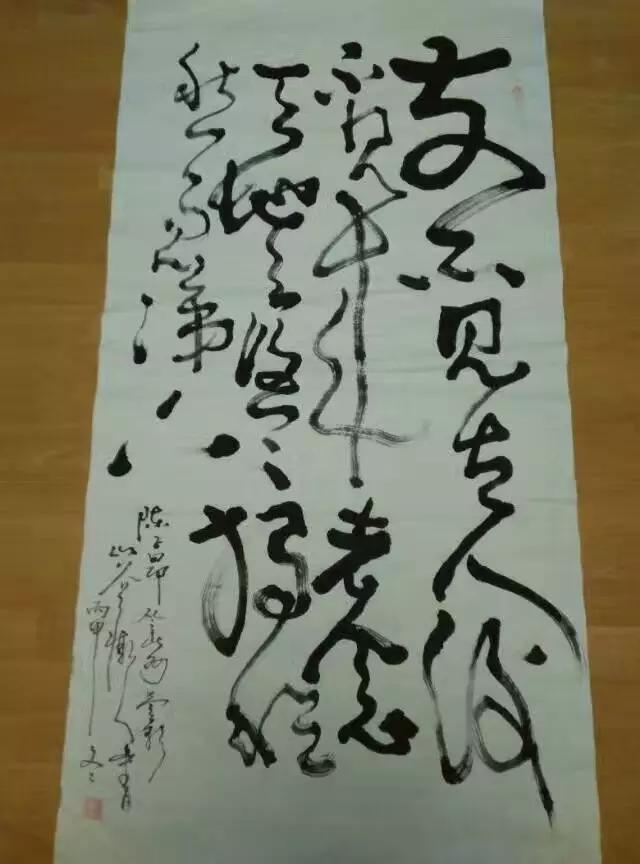 前不见古人後
不见来者念
天地之悠悠獨愴
然而涕下
陈子昂登幽州臺歌
丙申